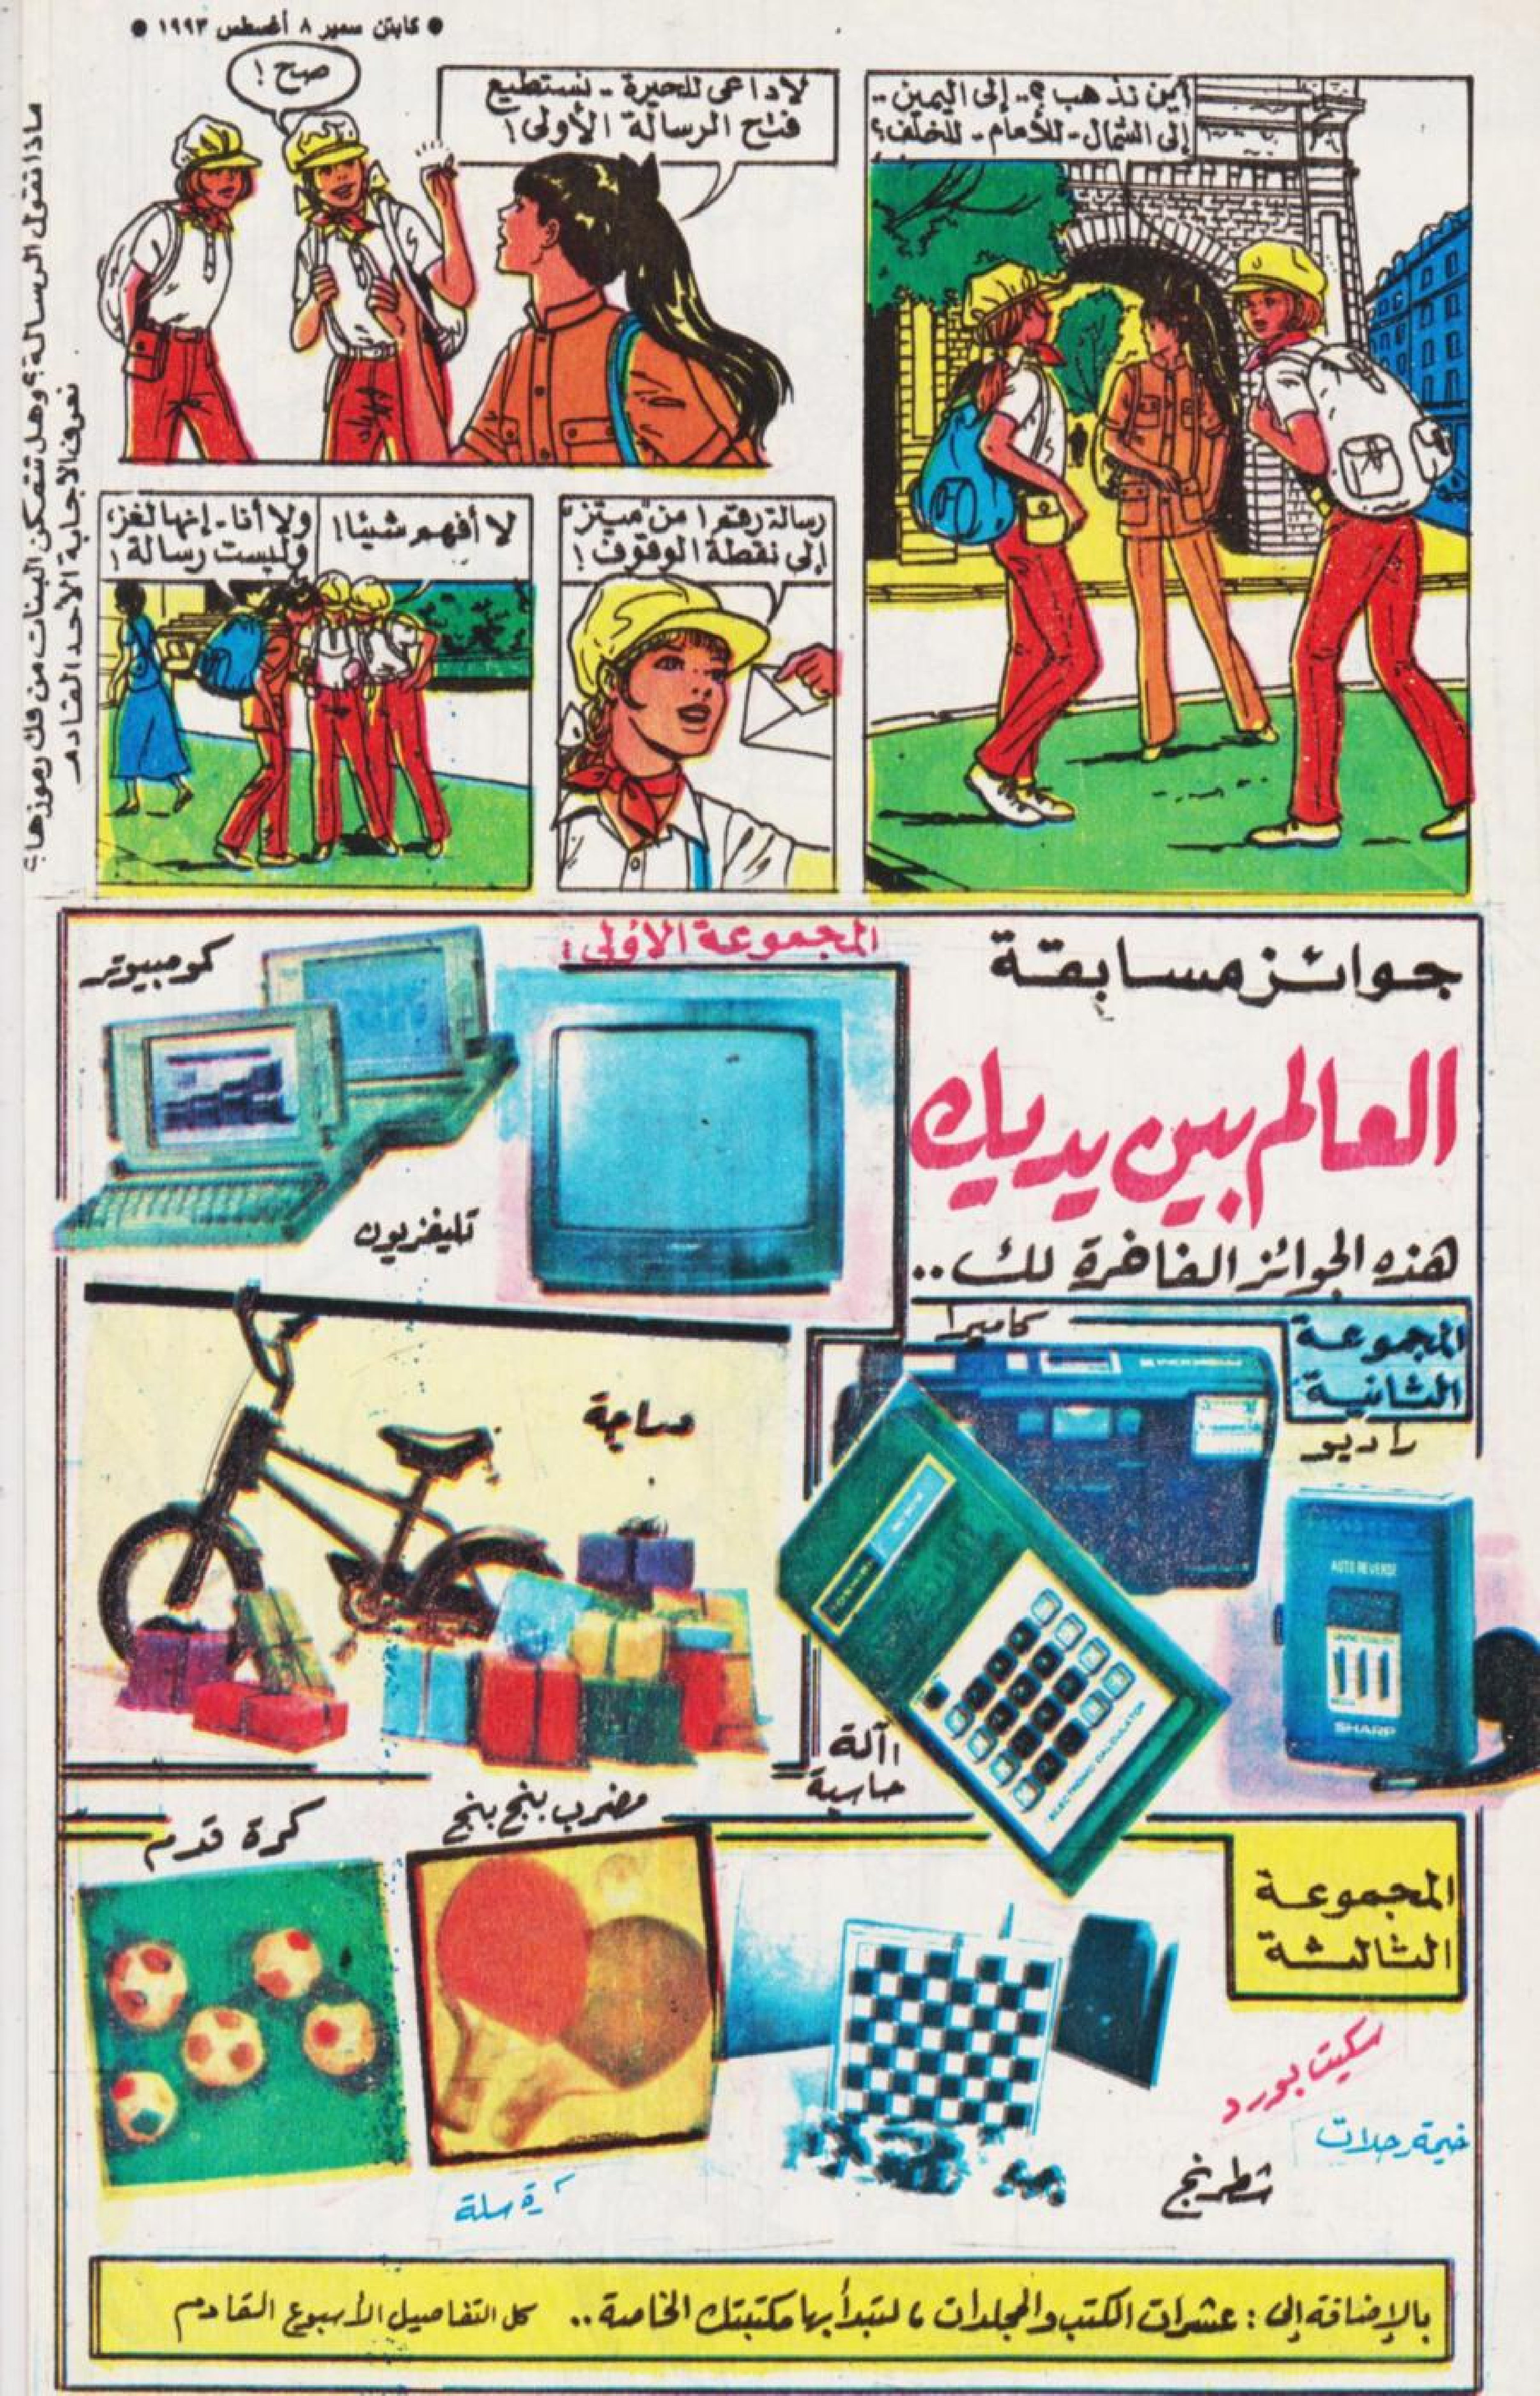 ● كابتن سمير ٨ أغسطس ١٩٩٣ ●
أين نذهب؟.. إلى اليمين ..
إلى الشمال - للأمام - للخلف؟
لاداعى للحيرة - نستطيع
فتح الرسالة الأولى!
صح!
رسالة رقم ١ من "ميتز"
إلى نقطة الوقوف!
لا أفهم شيئا!
ولا أنا - إنها لغز،
وليست رسالة!
ماذا تقول الرسالة؟ وهل تتمكن البنات من فك رموزها؟
نعرف الاجابة الأحد القادم
جوائز مسابقة
العالم بين يديك
هذه الجوائز الفاخرة لك..
المجموعة الأولى:
كومبيوتر
تليفزيون
دراجة
المجموعة
الثانية
كاميرا
راديو
AUTO REVERSE
SHARP
ELECTRONIC CALCULATOR
اآلة
حاسبة
المجموعة
الثالثة
مضرب بنج بنج
كرة قدم
سكيت بورد
خيمة رحلات
شطرنج
كرة سلة
بالإضافة إلى : عشرات الكتب والمجلدات ، لتبدأ بها مكتبتك الخاصة .. كل التفاصيل الأسبوع القادم